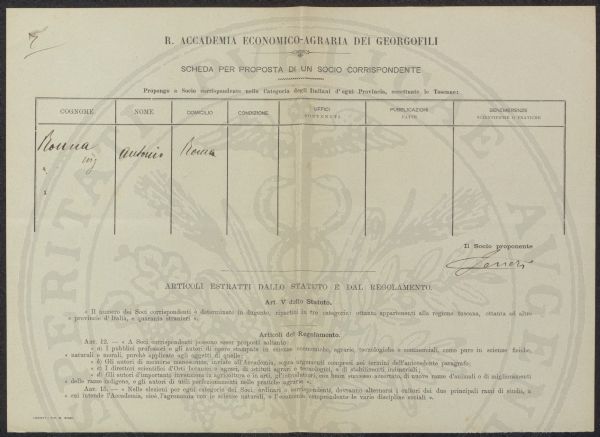 R. ACCADEMIA ECONOMICO-AGRARIA DEI GEORGOFILI
SCHEDA PER PROPOSTA DI UN SOCIO CORRISPONDENTE
Propongo a Socio corrispondente nella Categoria degli Italiani d'ogni Provincia, eccettuate le Toscane:
COGNOME NOME DOMICILIO CONDIZIONE UFFICI PUBBLICAZIONI BENEMERENZE
SOSTENUTI FATTE SCIENTIFICHE O PRATICHE
Ronna Antonio Roma
ing
Il Socio proponente
ARTICOLI ESTRATTI DALLO STATUTO E DAL REGOLAMENTO.
Art. V dello Statuto.
« Il numero dei Soci corrispondenti è determinato in dugento, ripartiti in tre categorie: ottanta appartenenti alla regione toscana, ottanta ad altre
« provincie d'Italia, e quaranta stranieri ».
Articoli del Regolamento.
ART. 12. — « A Soci corrispondenti possono esser proposti soltanto:
« a) I pubblici professori o gli autori di opere stampate in scienze economiche, agrarie, tecnologiche e commerciali, come pure in scienze fisiche,
« naturali e morali, purchè applicate agli oggetti di quelle;
« b) Gli autori di memorie manoscritte, inviate all'Accademia, sopra argomenti compresi nei termini dell'antecedente paragrafo;
« c) I direttori scientifici d'Orti botanici o agrari, di istituti agrari o tecnologici, o di stabilimenti industriali;
« d) Gli autori d'importanti invenzioni in agricoltura o in arti, gl'introduttori, con buon successo accertato, di nuove razze d'animali o di miglioramenti
« delle razze indigene, e gli autori di utili perfezionamenti nelle pratiche agrarie ».
ART. 15. — « Nelle elezioni per ogni categoria dei Soci, ordinari o corrispondenti, dovranno alternarsi i cultori dei due principali rami di studio, a
« cui intende l'Accademia, cioè l'agronomia con le scienze naturali, e l'economia comprendente le varie discipline sociali ».